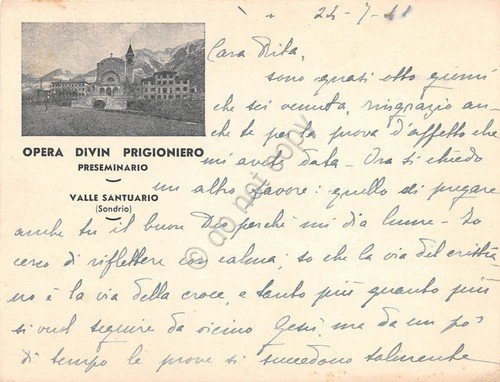 24-7-41
Cara Rita,
sono quasi otto giorni
che sei venuta, ringrazio an-
che te per la prova d'affetto che
mi avete data. Ora ti chiedo
un altro favore: quello di pregare
anche tu il buon Dio perché mi dia lume. Io
cerco di riflettere con calma; so che la via del cristia
no è la via della croce, e tanto più quanto più
si vuol seguire da vicino Gesù, ma da un po'
di tempo le prove si succedono talmente
OPERA DIVIN PRIGIONIERO
PRESEMINARIO
VALLE SANTUARIO
(Sondrio)
© do not copy